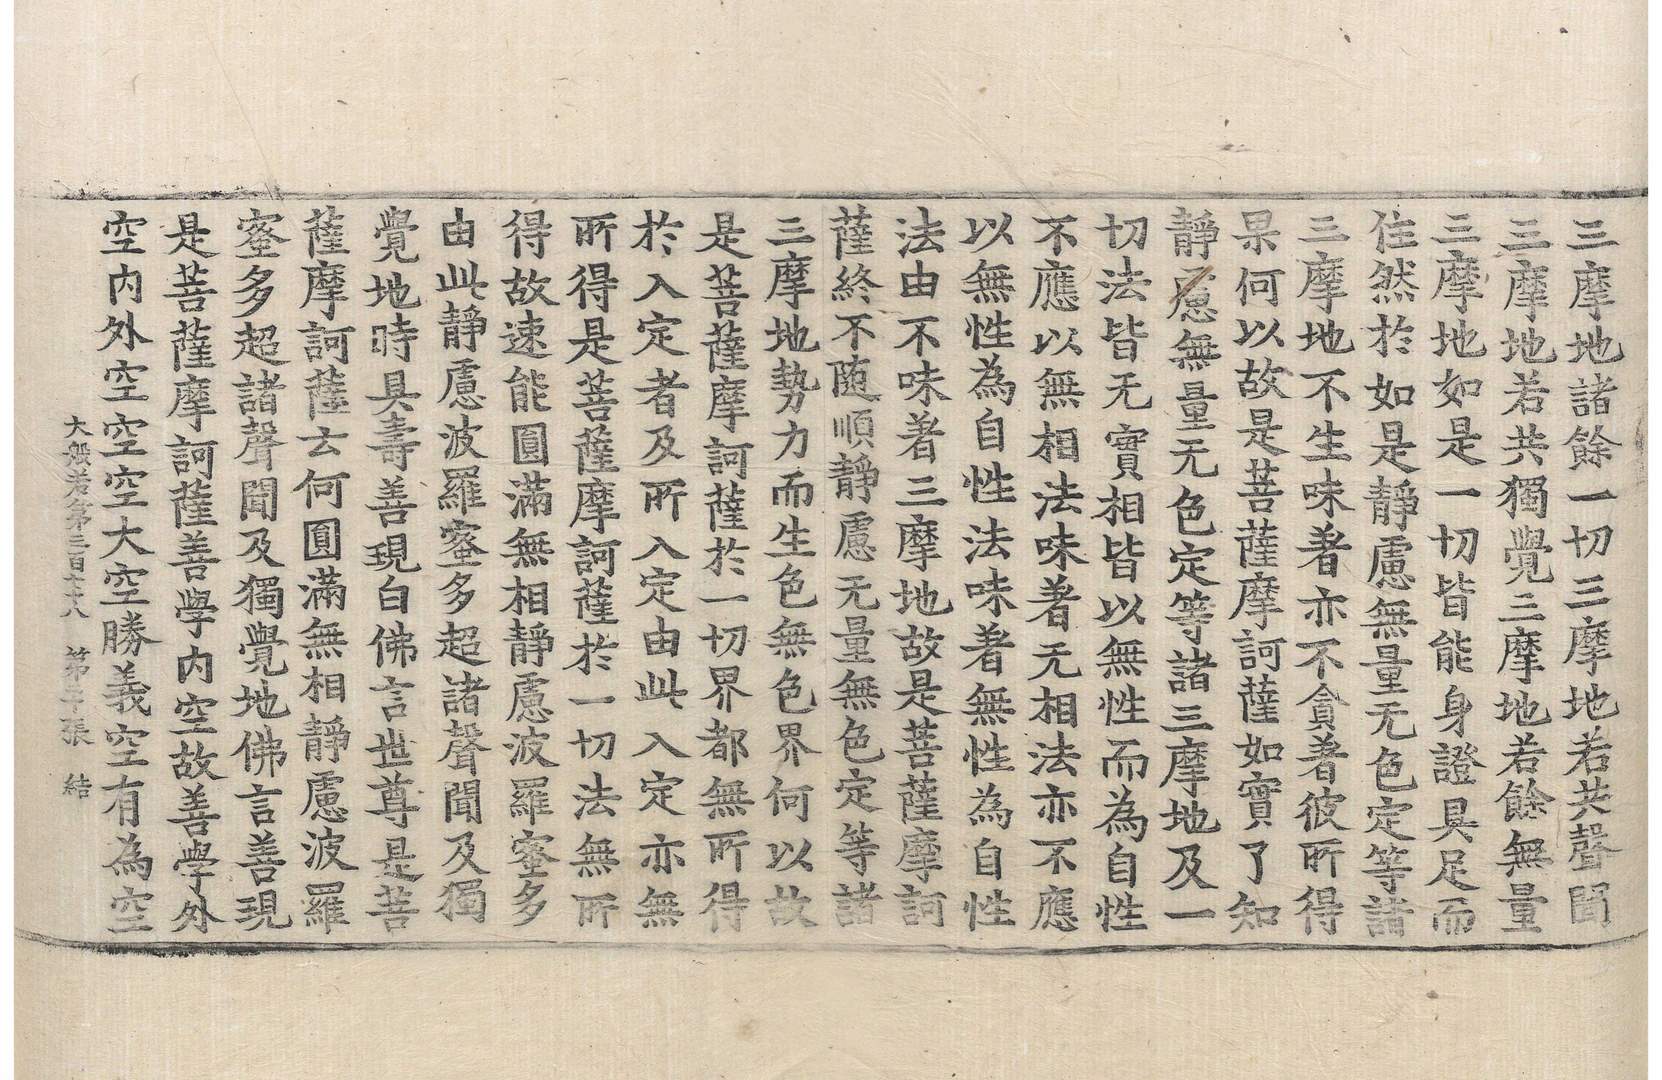 三摩地諸餘一切三摩地若共聲聞
三摩地若共獨覺三摩地若餘無量
三摩地如是一切皆能身證具足而
住然於如是靜慮無量无色定等諸
三摩地不生味著亦不貪著彼所得
果何以故是菩薩摩訶薩如實了知
靜慮無量无色定等諸三摩地及一
切法皆无實相皆以無性而為自性
不應以無相法味著无相法亦不應
以無性為自性法味著無性為自性
法由不味著三摩地故是菩薩摩訶
薩終不随順靜慮无量無色定等諸
三摩地勢力而生色無色界何以故
是菩薩摩訶薩於一切界都無所得
於入定者及所入定由此入定亦無
所得是菩薩摩訶薩於一切法無所
得故速能圓滿無相靜慮波羅蜜多
由此靜慮波羅蜜多超諸聲聞及獨
覺地時具壽善現白佛言世尊是菩
薩摩訶薩云何圓滿無相靜慮波羅
蜜多超諸聲聞及獨覺地佛言善現
是菩薩摩訶薩善學内空故善學外
空内外空空空大空勝義空有為空
大般若第三百七十八 第于張 結